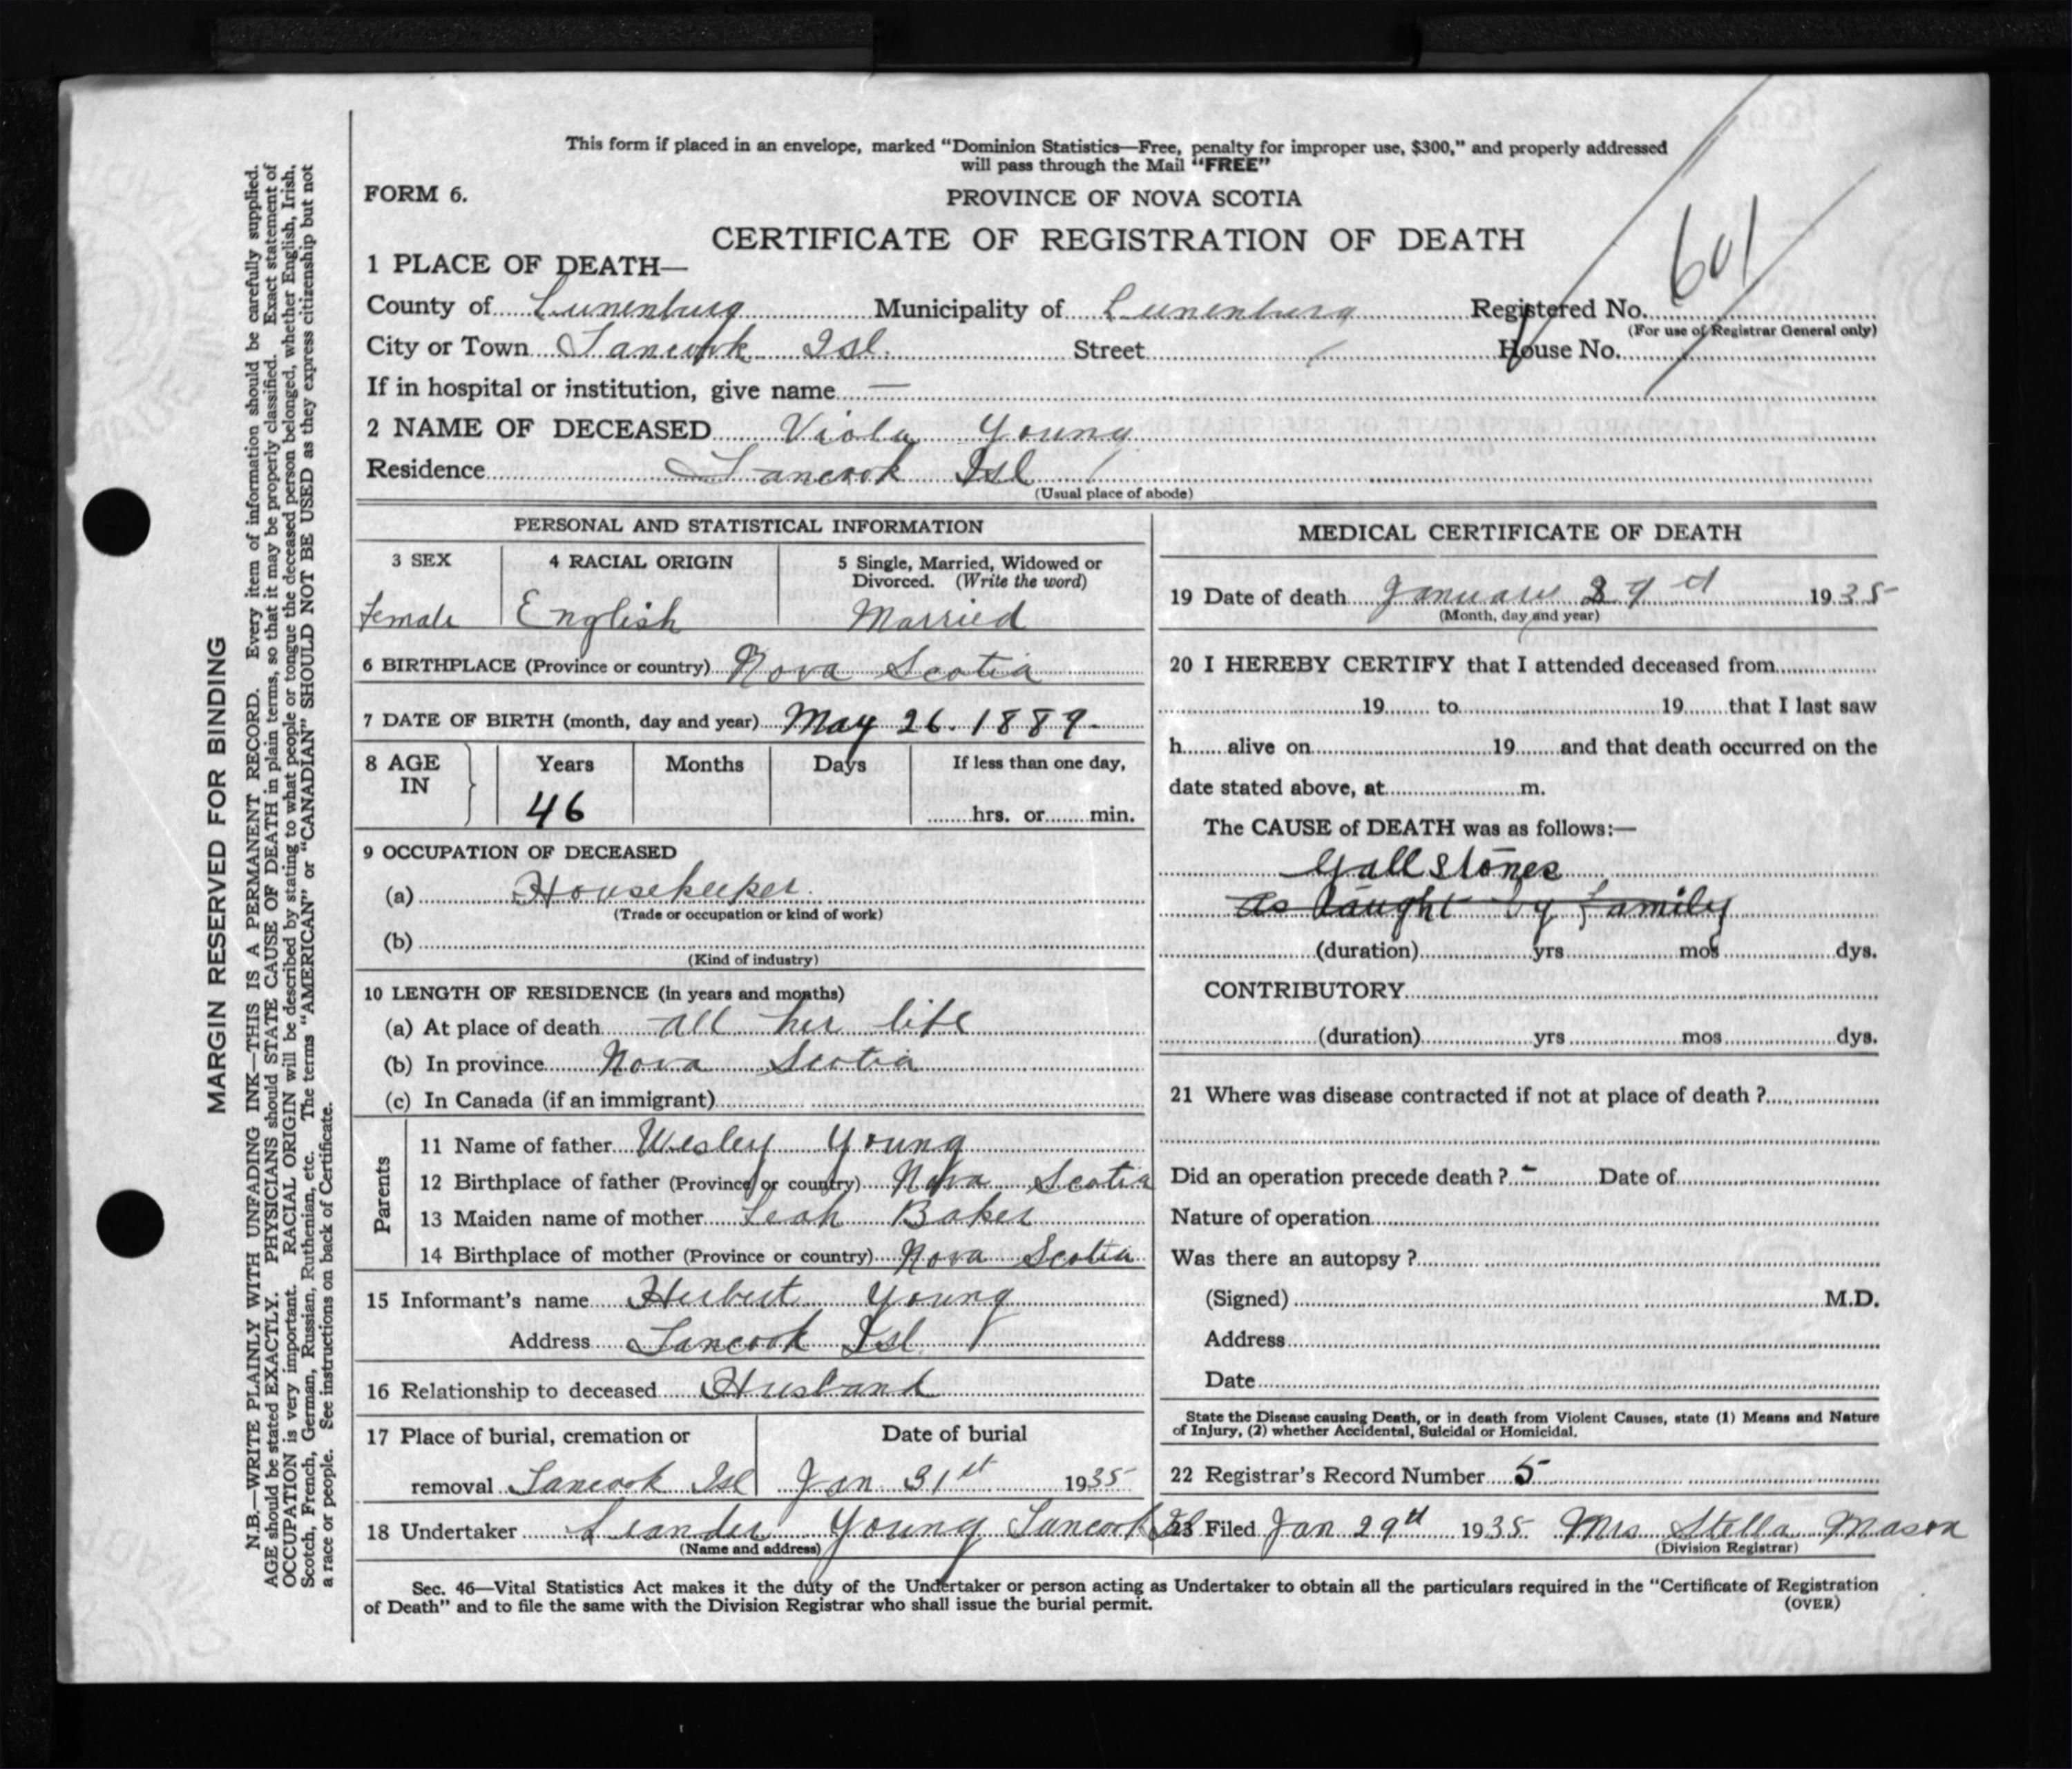 This form if placed in an envelope, marked “Dominion Statistics—Free, penalty for improper use, $300,” and properly addressed
will pass through the Mail “FREE”
FORM 6.
PROVINCE OF NOVA SCOTIA
601
CERTIFICATE OF REGISTRATION OF DEATH
1 PLACE OF DEATH—
County of Lunenburg Municipality of Lunenburg Registered No.
(For use of Registrar General only)
City or Town Tancook Isl. Street House No.
If in hospital or institution, give name —
2 NAME OF DECEASED Viola Young
Residence Tancook Isl
(Usual place of abode)
PERSONAL AND STATISTICAL INFORMATION
3 SEX
Female
4 RACIAL ORIGIN
English
5 Single, Married, Widowed or
Divorced. (Write the word)
Married
6 BIRTHPLACE (Province or country) Nova Scotia
7 DATE OF BIRTH (month, day and year) May 26. 1889.
8 AGE
IN
Years
46
Months
Days
If less than one day,
hrs. or min.
9 OCCUPATION OF DECEASED
(a) Housekeeper.
(Trade or occupation or kind of work)
(b)
(Kind of industry)
10 LENGTH OF RESIDENCE (in years and months)
(a) At place of death all her life
(b) In province Nova Scotia
(c) In Canada (if an immigrant)
Parents
11 Name of father Wesley Young
12 Birthplace of father (Province or country) Nova Scotia
13 Maiden name of mother Leah Baker
14 Birthplace of mother (Province or country) Nova Scotia
15 Informant’s name Herbert Young
Address Tancook Isl.
16 Relationship to deceased Husband
17 Place of burial, cremation or
removal Tancook Isl
Date of burial
Jan 31st 1935
18 Undertaker Leander Young Tancook Isl
(Name and address)
MEDICAL CERTIFICATE OF DEATH
19 Date of death January 29 1935
(Month, day and year)
20 I HEREBY CERTIFY that I attended deceased from
19 to 19 that I last saw
h alive on 19 and that death occurred on the
date stated above, at m.
The CAUSE of DEATH was as follows:—
Gall Stones
as taught by family
(duration) yrs mos dys.
CONTRIBUTORY
(duration) yrs mos dys.
21 Where was disease contracted if not at place of death ?
Did an operation precede death ? - Date of
Nature of operation
Was there an autopsy ?
(Signed) M.D.
Address
Date
State the Disease causing Death, or in death from Violent Causes, state (1) Means and Nature
of Injury, (2) whether Accidental, Suicidal or Homicidal.
22 Registrar’s Record Number 5
23 Filed Jan 29th 1935 Mrs Stella Mason
(Division Registrar)
Sec. 46—Vital Statistics Act makes it the duty of the Undertaker or person acting as Undertaker to obtain all the particulars required in the “Certificate of Registration
of Death” and to file the same with the Division Registrar who shall issue the burial permit.
(OVER)
MARGIN RESERVED FOR BINDING
N.B.—WRITE PLAINLY WITH UNFADING INK—THIS IS A PERMANENT RECORD. Every item of information should be carefully supplied.
AGE should be stated EXACTLY. PHYSICIANS should STATE CAUSE OF DEATH in plain terms, so that it may be properly classified. Exact statement of
OCCUPATION is very important. RACIAL ORIGIN will be described by stating to what people or tongue the deceased person belonged, whether English, Irish,
Scotch, French, German, Russian, Ruthenian, etc. The terms “AMERICAN” or “CANADIAN” SHOULD NOT BE USED as they express citizenship but not
a race or people. See instructions on back of Certificate.